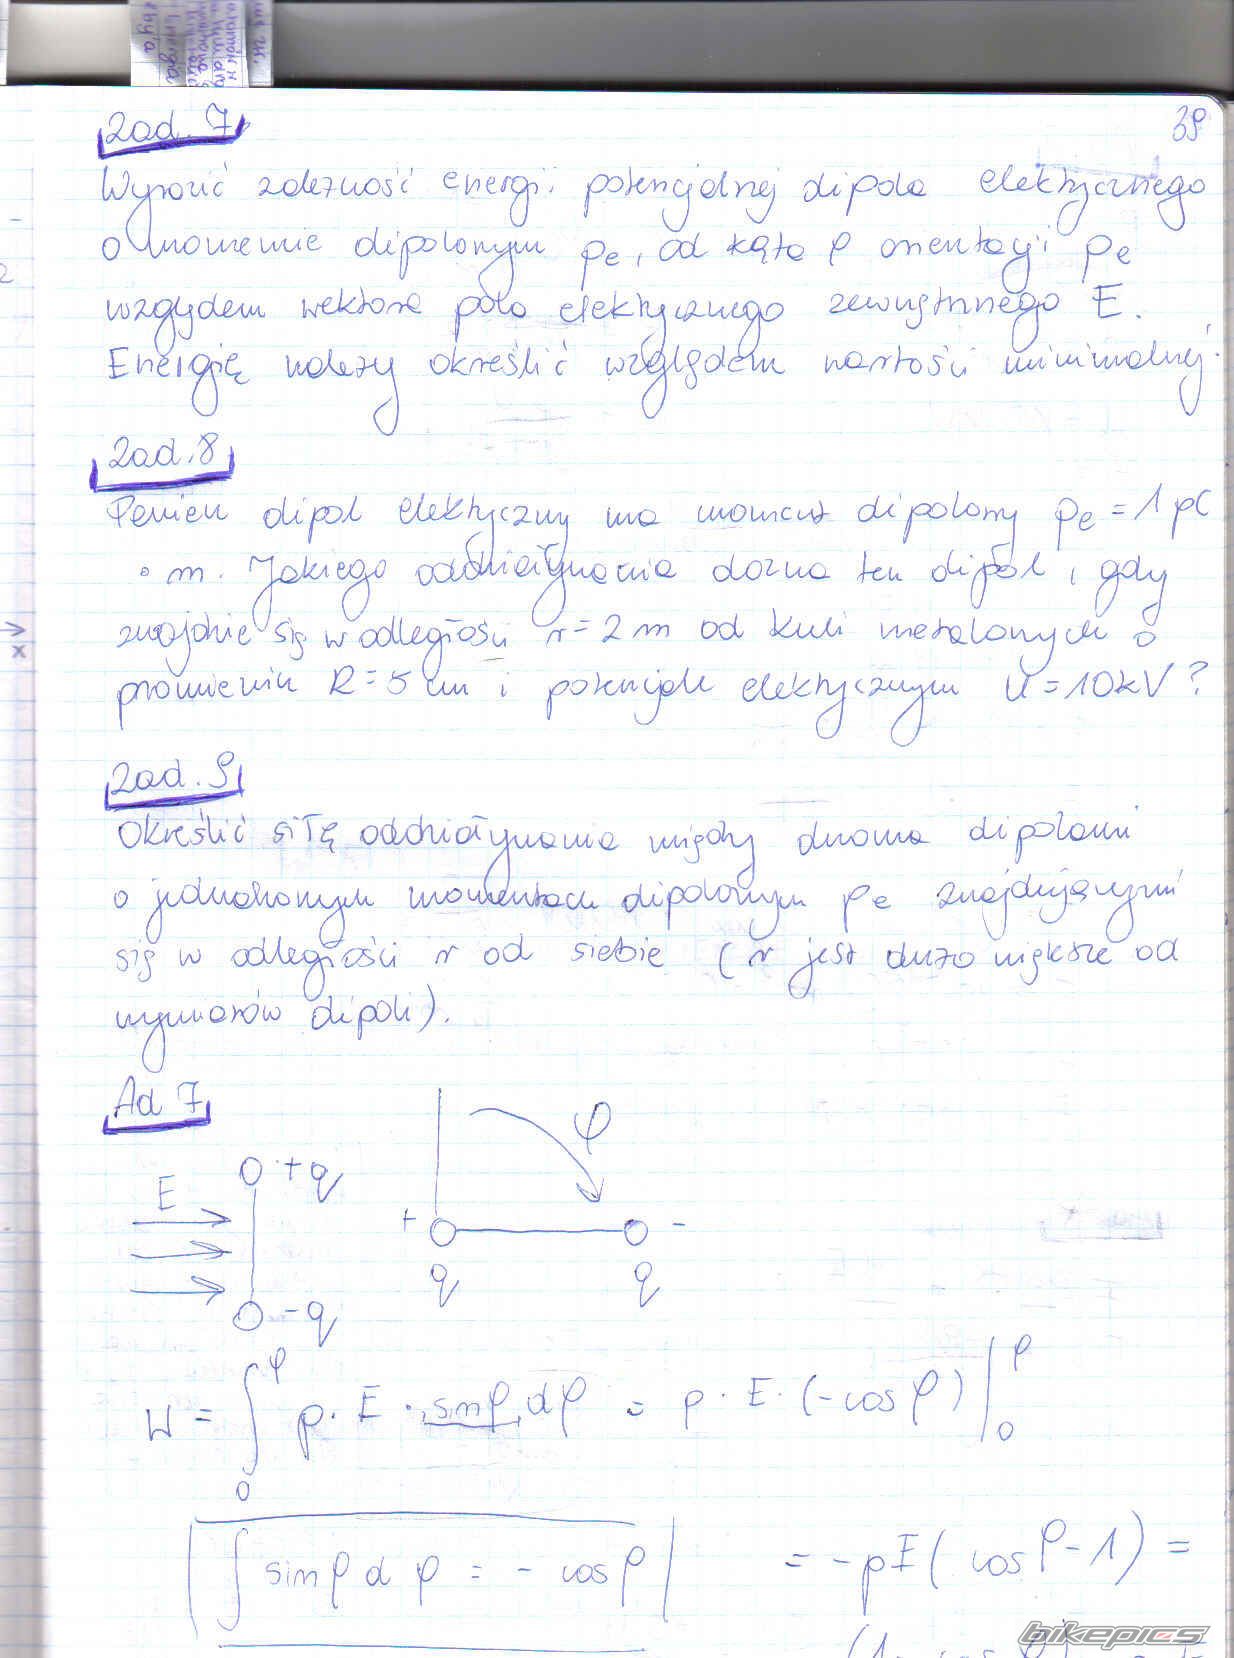 39
Zad. 7
Wyrazić zależność energii potencjalnej dipola elektrycznego
o momemie dipolowym pe, od kąta φ orientacji pe
względem wektora pola elektrycznego zewnętrznego E.
Energię należy określić względem wartości minimalnej.
Zad. 8
Pewien dipol elektryczny ma moment dipolowy pe = 1 pC
· m. Jakiego oddziaływania dozna ten dipol, gdy
znajdzie się w odległości r = 2 m od kuli metalowych o
promieniu R = 5 cm i potencjale elektrycznym U = 10kV?
Zad. 9
Określić siłę oddziaływania między dwoma dipolami
o jednakowym momentach dipolowym pe znajdującymi
się w odległości r od siebie (r jest dużo większe od
wymiarów dipoli).
Ad 7
E +q φ
+ -
-q q q
W = ∫₀^φ p · E · sinφ dφ = p · E · (-cosφ) |₀^φ
| ∫ sinφ dφ = - cosφ | = -pE(cosφ-1) =
bikepics